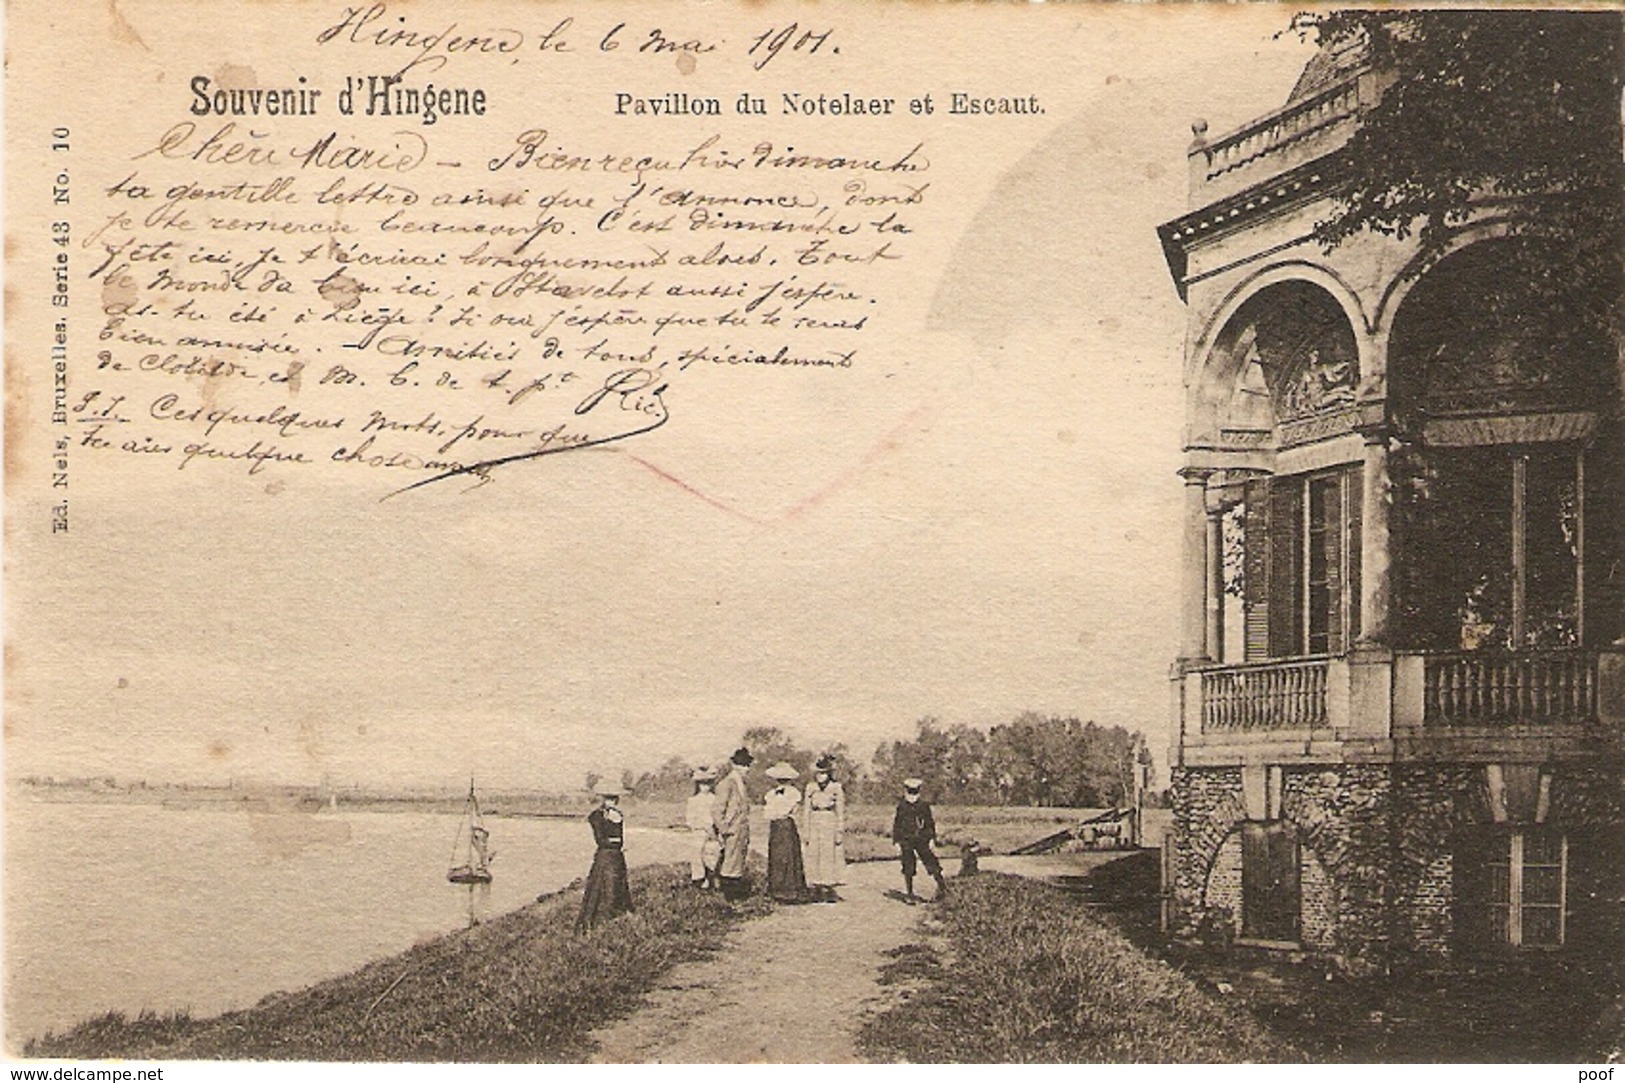 Hingene, le 6 mai 1901.
Souvenir d'Hingene
Pavillon du Notelaer et Escaut.
Ed. Nels, Bruxelles. Serie 43 No. 10
Chère Marie – Bien reçu hier dimanche
ta gentille lettre ainsi que l'annonce, dont
je te remercie beaucoup. C'est dimanche la
fête ici, je t'écrirai longuement alors. Tout
le monde va bien ici, à Stavelot aussi j'espère.
as-tu été à Liège? Si oui j'espère que tu te seras
bien amusée. – Amitiés de tous, spécialement
de Clotilde et M. b. de t. pt
Ces quelques mots, pour que
tu aies quelque chose
www.delcampe.net
poof